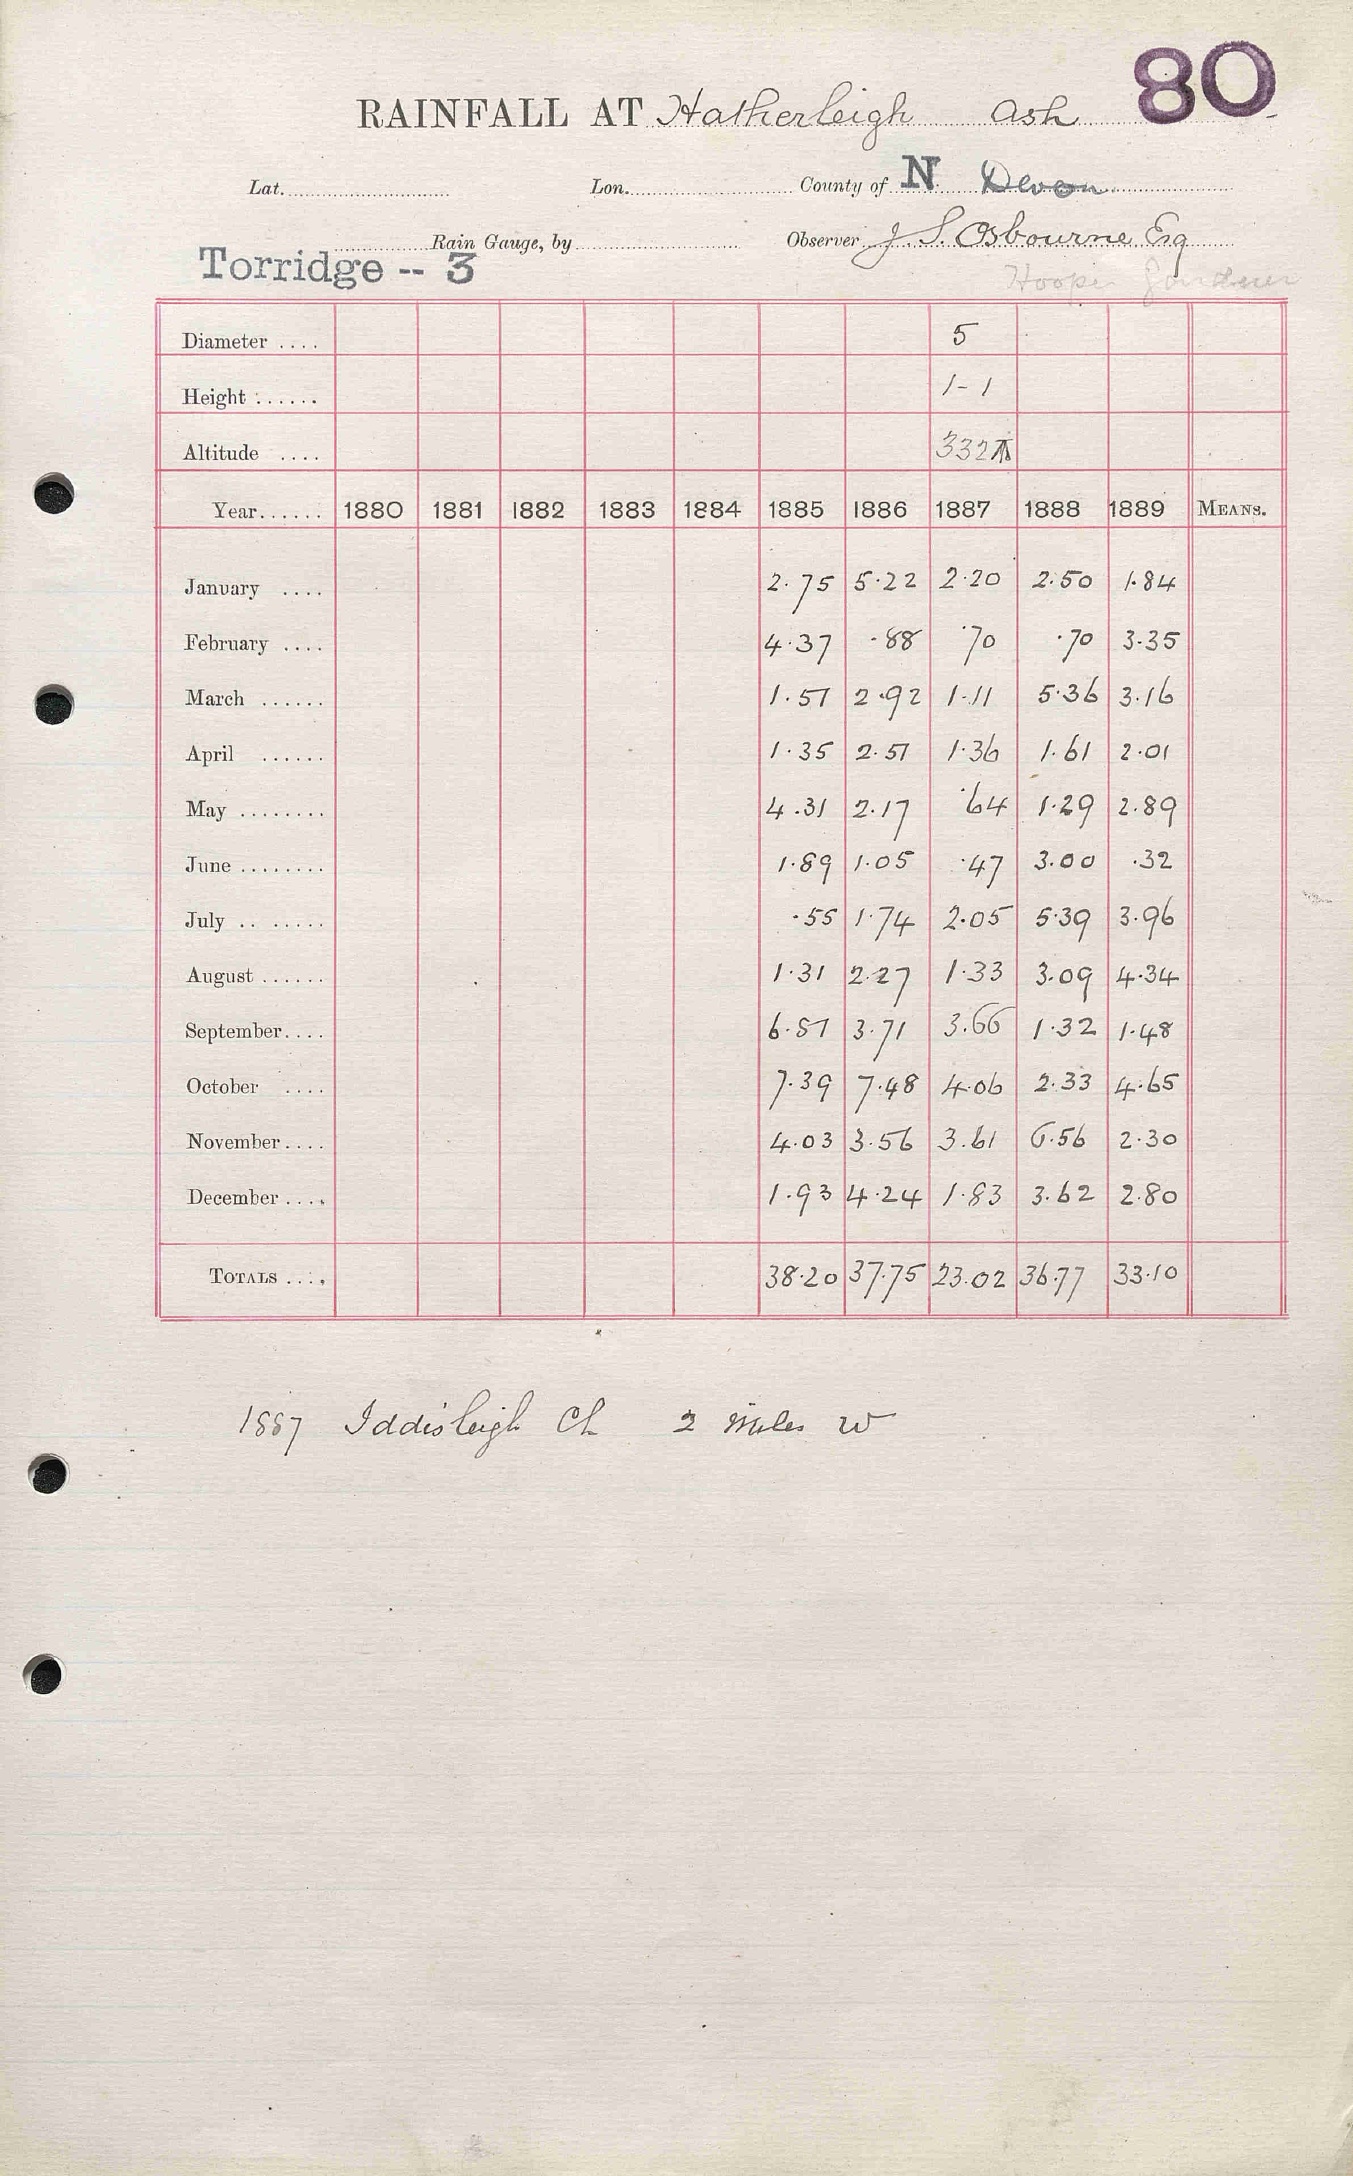 80
RAINFALL AT Hatherleigh Ash
Lat. Lon. County of N Devon
Rain Gauge, by Observer J. S. Osbourne Esq
Torridge -- 3 Hooper Gardener
Diameter .... 5
Height ...... 1-1
Altitude .... 332
Year...... 1880 1881 1882 1883 1884 1885 1886 1887 1888 1889 MEANS.
January .... 2.75 5.22 2.20 2.50 1.84
February .... 4.37 .88 .70 .70 3.35
March ...... 1.51 2.92 1.11 5.36 3.16
April ...... 1.35 2.51 1.36 1.61 2.01
May ........ 4.31 2.17 .64 1.29 2.89
June ........ 1.89 1.05 .47 3.00 .32
July .. ..... .55 1.74 2.05 5.39 3.96
August ...... 1.31 2.27 1.33 3.09 4.34
September.... 6.81 3.71 3.66 1.32 1.48
October .... 7.39 7.48 4.06 2.33 4.65
November.... 4.03 3.56 3.61 6.56 2.30
December .... 1.93 4.24 1.83 3.62 2.80
TOTALS .... 38.20 37.75 23.02 36.77 33.10
1887 Iddisleigh Ch 2 Miles W